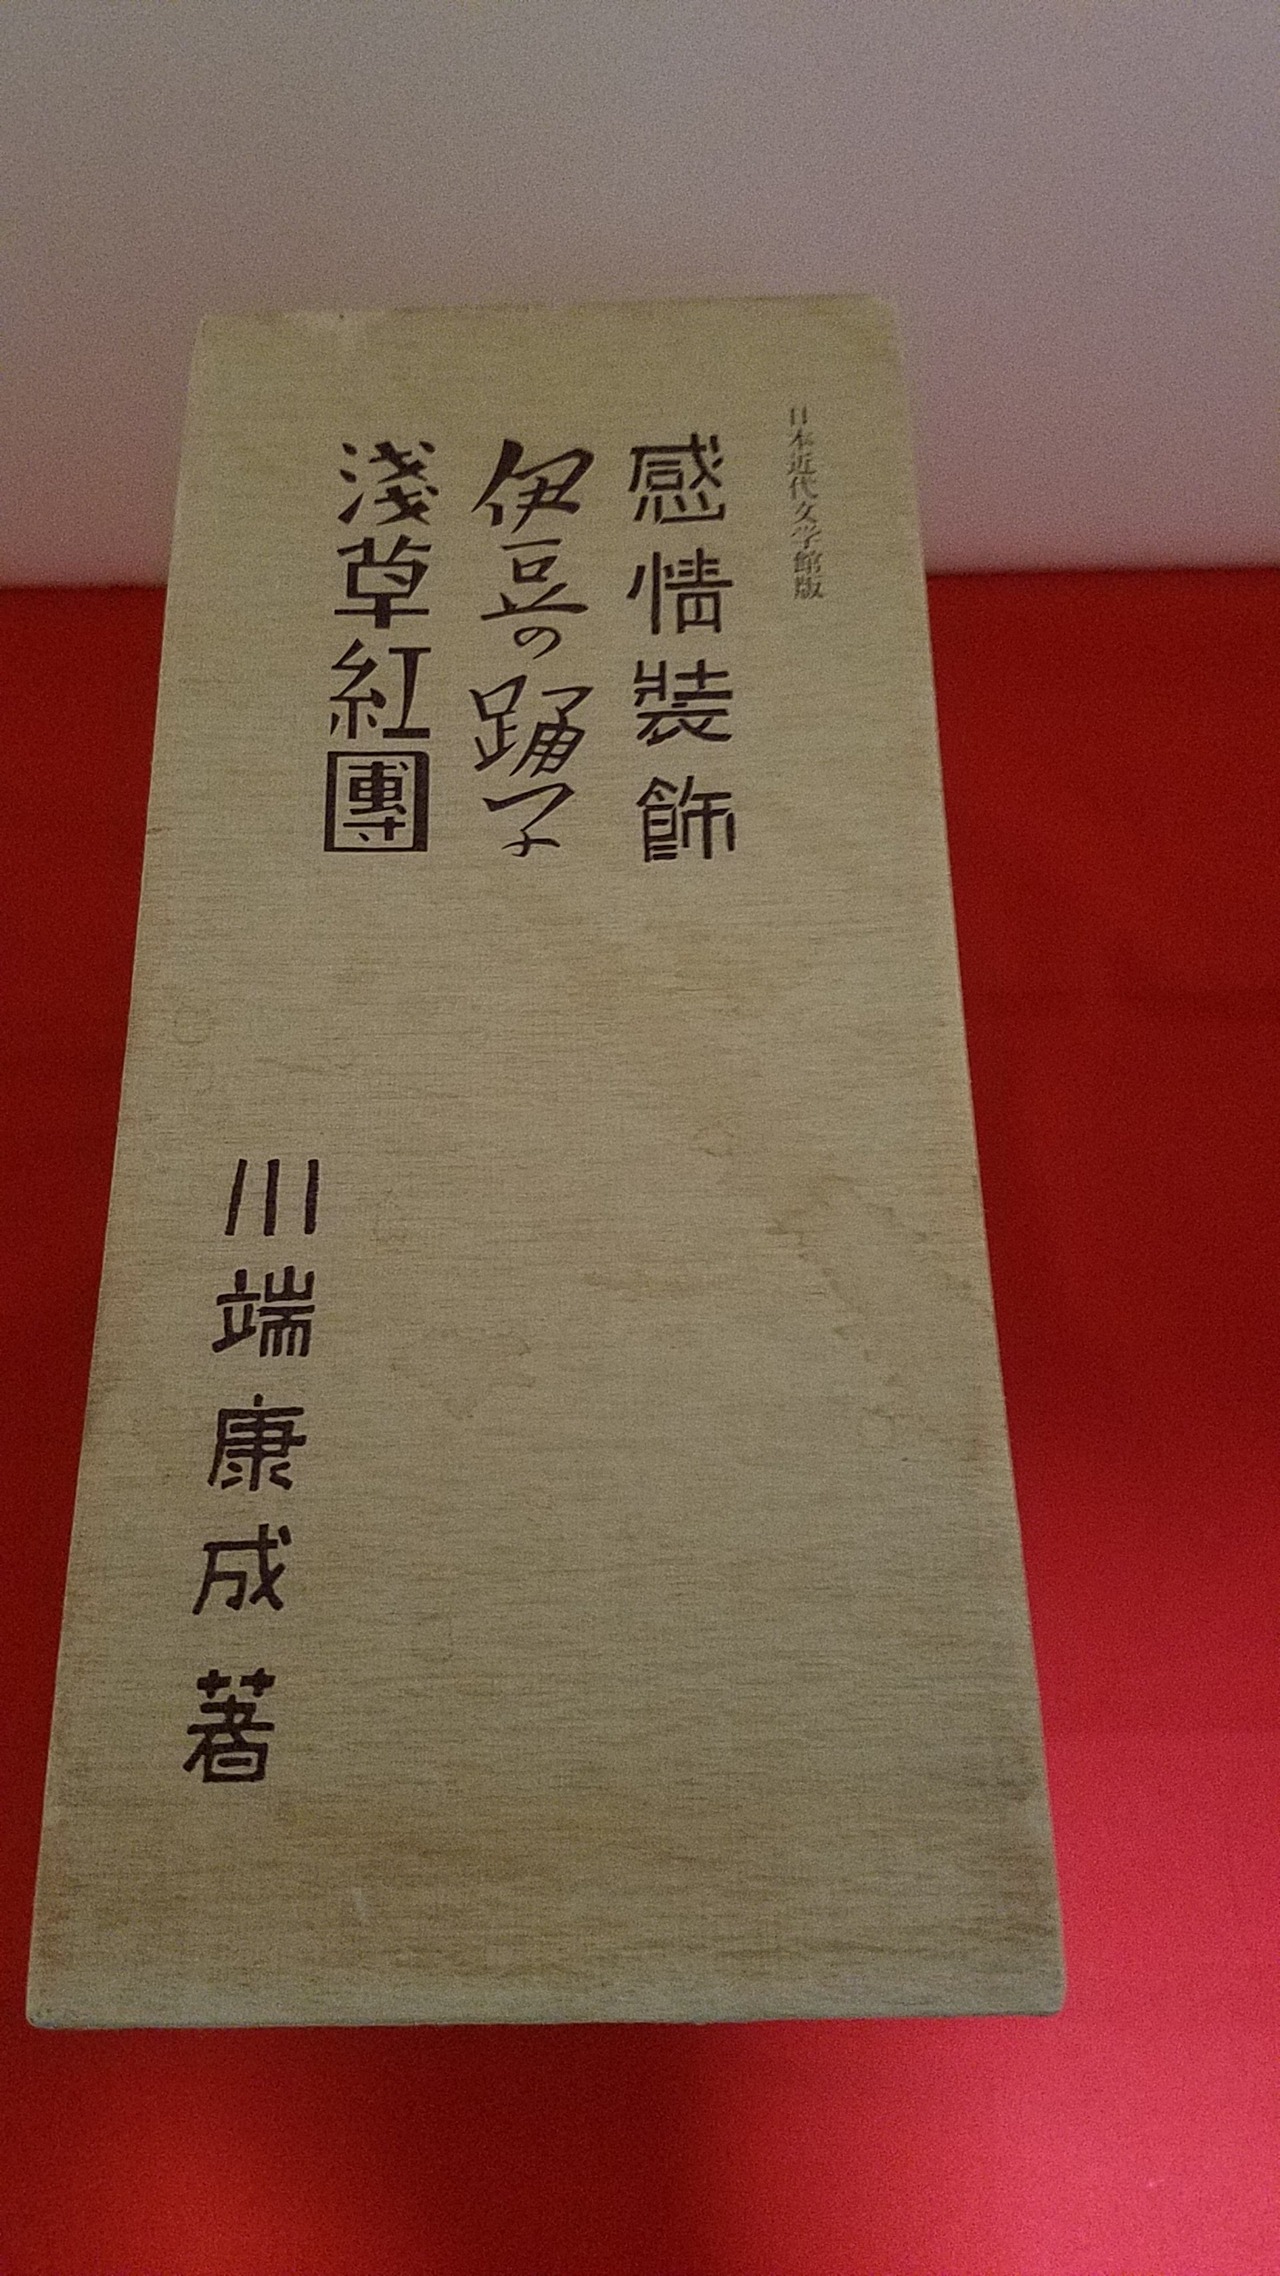 日本近代文学館版
感情装飾
伊豆の踊子
淺草紅團
川端康成著